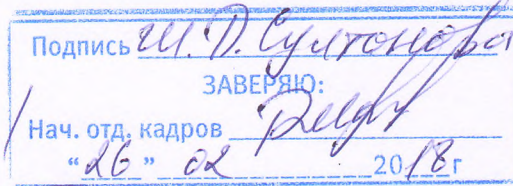 Подпись Ш. D. Султонова
ЗАВЕРЯЮ:
Нач. отд. кадров
“ 26 ” 02 2018 г